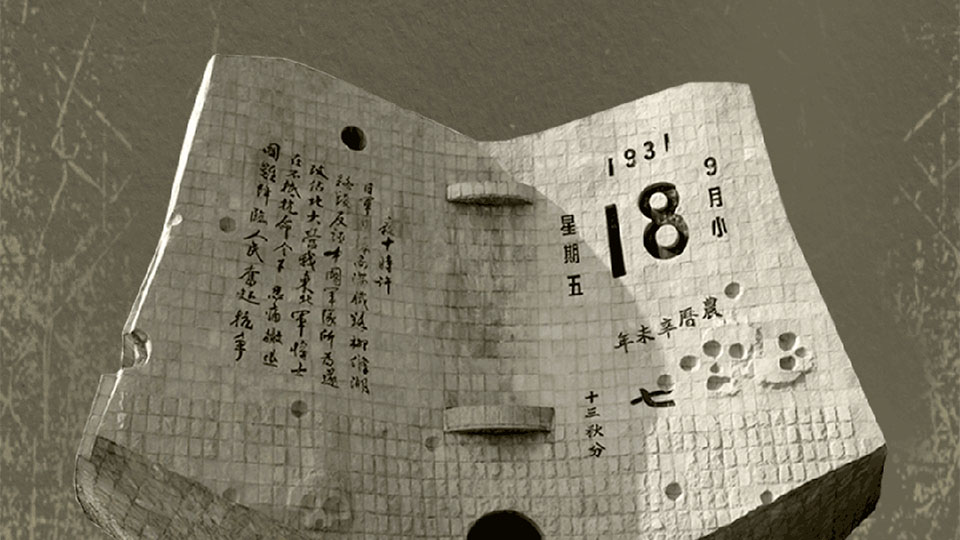 1931
9月小
18
星期五
農曆辛未年
七
十三秋分
夜十時許
日軍南滿鐵路柳條湖
路段反誣中國軍隊所為遂
攻佔北大營我東北軍将士
在不抵抗命令下忍痛撤退
國難降臨人民奮起抗爭